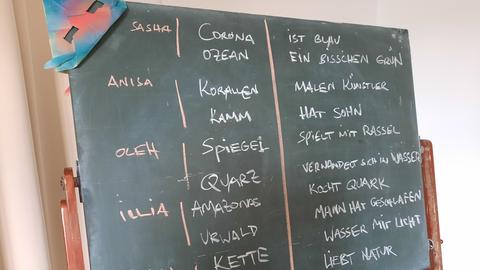 SASHA CORONA IST BLAU
OZEAN EIN BISSCHEN GRÜN
ANISA KORALLEN MALEN KÜNSTLER
KAMM HAT SOHN
OLEH SPIEGEL SPIELT MIT RASSEL
QUARZ VERWANDELT SICH IN WASSER
KOCHT QUARK
ILLIA AMAZONAS MANN HAT GESCHLAFEN
URWALD WASSER MIT LICHT
KETTE LIEBT NATUR